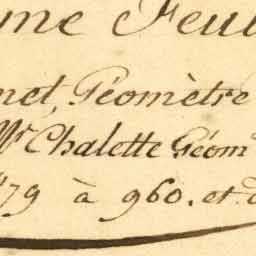 me Feui
net, Géomètre
Mr. Chalette Géom
479 à 960. et d